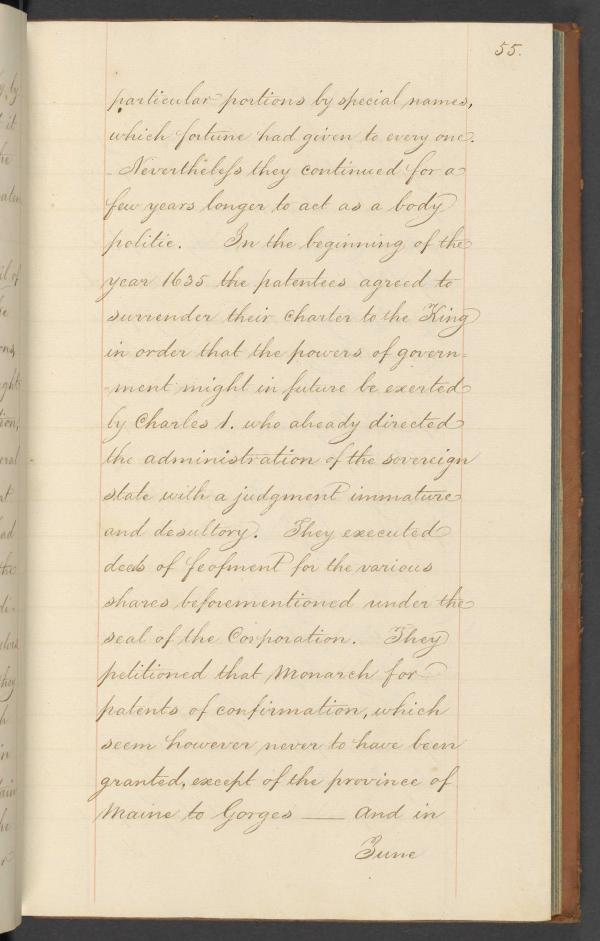 55.
particular portions by special names,
which fortune had given to every one.
- Nevertheless they continued for a
few years longer to act as a body
politic. In the beginning of the
year 1635 the patentees agreed to
surrender their Charter to the King
in order that the powers of govern=
-ment might in future be exerted
by Charles 1. who already directed
the administration of the sovereign
state with a judgment immature
and desultory. They executed
deeds of feofment for the various
shares beforementioned under the
seal of the Corporation. They
petitioned that Monarch for
patents of confirmation, which
seem however never to have been
granted, except of the province of
Maine to Gorges — And in
June